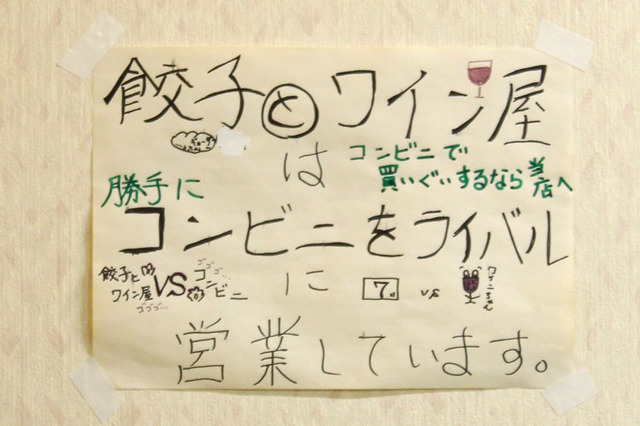 餃子とワイン屋
は
コンビニで
買いぐいするなら当店へ
勝手に
コンビニをライバル
に
餃子と
ワイン屋
VS
コンビニ
ゴゴゴ…
ゴゴゴ…
7
vs
ワインちゃん
営業しています。